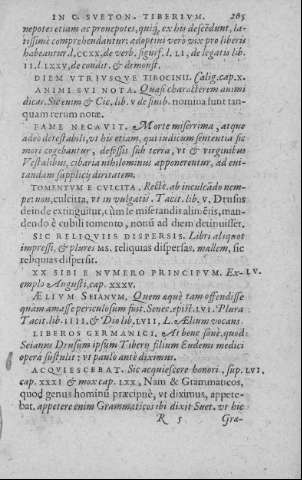 IN C. SVETON. TIBERIVM. 265
nepotes etiam ac pronepotes, quiq, ex his descẽdunt, la-
tissimè comprehendantur: adoptiui verò vice pro liberis
habeantur. l. CCXX. de verb. signif. l. LI, de legatis lib.
II. l. LXXV, de condit. & demonst.
DIEM VTRIVSQVE TIROCINII. Calig. cap. X.
ANIMI SVI NOTA. Quasi characterem animi
dicas. Sic enim & Cic. lib. V de nomina sunt tan-
quam rerum notæ.
FAME NECAVIT. Morte miserrima, atque
adeò detestabili, vt his etiam, qui iudicum sententia sic
mori cogebantur, defossis sub terra, vt & virginibus
Vestalibus, cibaria nihilominus apponerentur, ad eui-
tandam supplicij diritatem.
TOMENTVM E CVLCITA. Rectè. ab inculcãdo nem-
pe: non, culcitra, vt in vulgatis. Tacit. lib. V. Drusus
deinde extinguitur, cùm se miserandis alimẽtis, man-
dendo è cubili tomento, nonũ ad diem detinuisset.
SIC RELIQVIIS DISPERSIS. Libri aliquot
impressi, & plures MS. reliquias dispersas. mallem, sic
reliquias dispersit.
XX SIBI E NVMERO PRINCIPVM. Ex- LV.
emplo Augusti, cap. XXXV.
ÆLIVM SEIANVM. Quem æquè tam offendisse
quam amasse periculosum fuit. Senec. epist. LVI. Plura
Tacit. lib. IIII, & Dio lib. LVII, L. Ælium vocans.
LIBEROS GERMANICI. At benè sanè, quod
Seianus Drusum ipsum Tiberij filium Eudemi medici
opera sustulit: vt paulò antè diximus.
ACQVIESCERAT. Sic acquiescere honori, sup. LVI.
cap. XXXI & mox cap. LXX, Nam & Grammaticos,
quod genus hominũ præcipuè, vt diximus, appete-
bat. appetere enim Grammaticos ibi dixit Suet. vt hic
R 5 Gra-